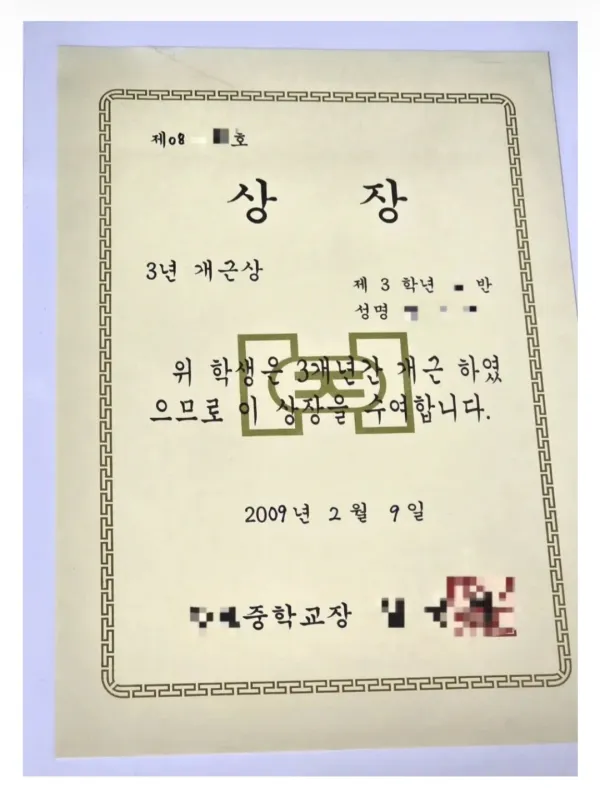 제08 호
상 장
3년 개근상
제 3 학년 반
성명
위 학생은 3개년간 개근 하였
으므로 이 상장을 수여합니다.
2009년 2월 9일
중학교장